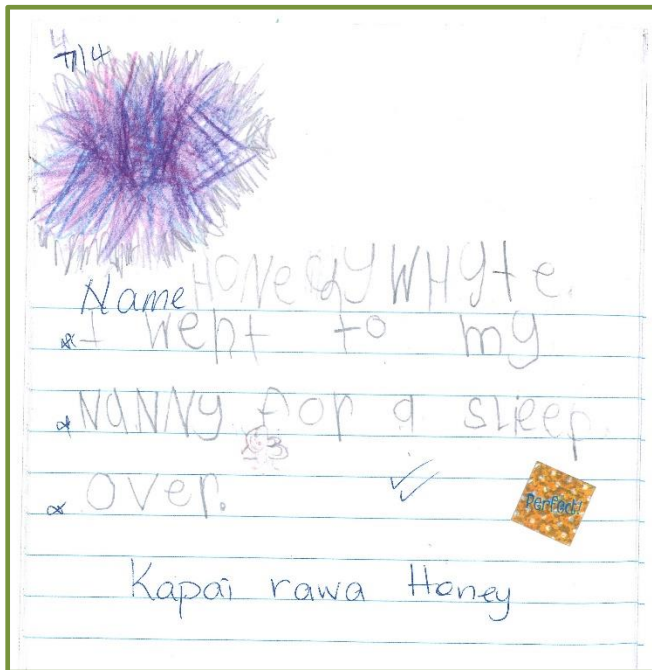 7/4
Name HONEY WHYte.
I went to my
NaNNY for a sleep
over.
Perfect!
Kapai rawa Honey